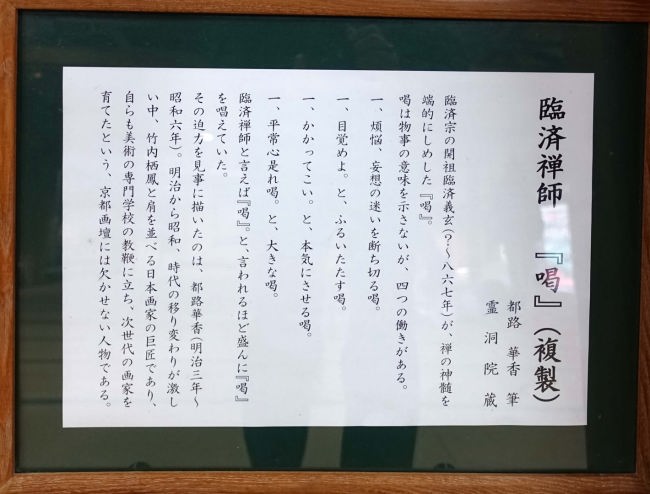 臨済禅師 『喝』(複製)
都路 華香 筆
霊洞院 蔵
臨済宗の開祖臨済義玄(?~八六七年)が、禅の神髄を
端的にしめした『喝』。
喝は物事の意味を示さないが、四つの働きがある。
一、煩悩、妄想の迷いを断ち切る喝。
一、目覚めよ。と、ふるいたたす喝。
一、かかってこい。と、本気にさせる喝。
一、平常心是れ喝。と、大きな喝。
臨済禅師と言えば『喝』。と、言われるほど盛んに『喝』
を唱えていた。
その迫力を見事に描いたのは、都路華香(明治三年~
昭和六年)。明治から昭和、時代の移り変わりが激し
い中、竹内栖鳳と肩を並べる日本画家の巨匠であり、
自らも美術の専門学校の教鞭に立ち、次世代の画家を
育てたという、京都画壇には欠かせない人物である。